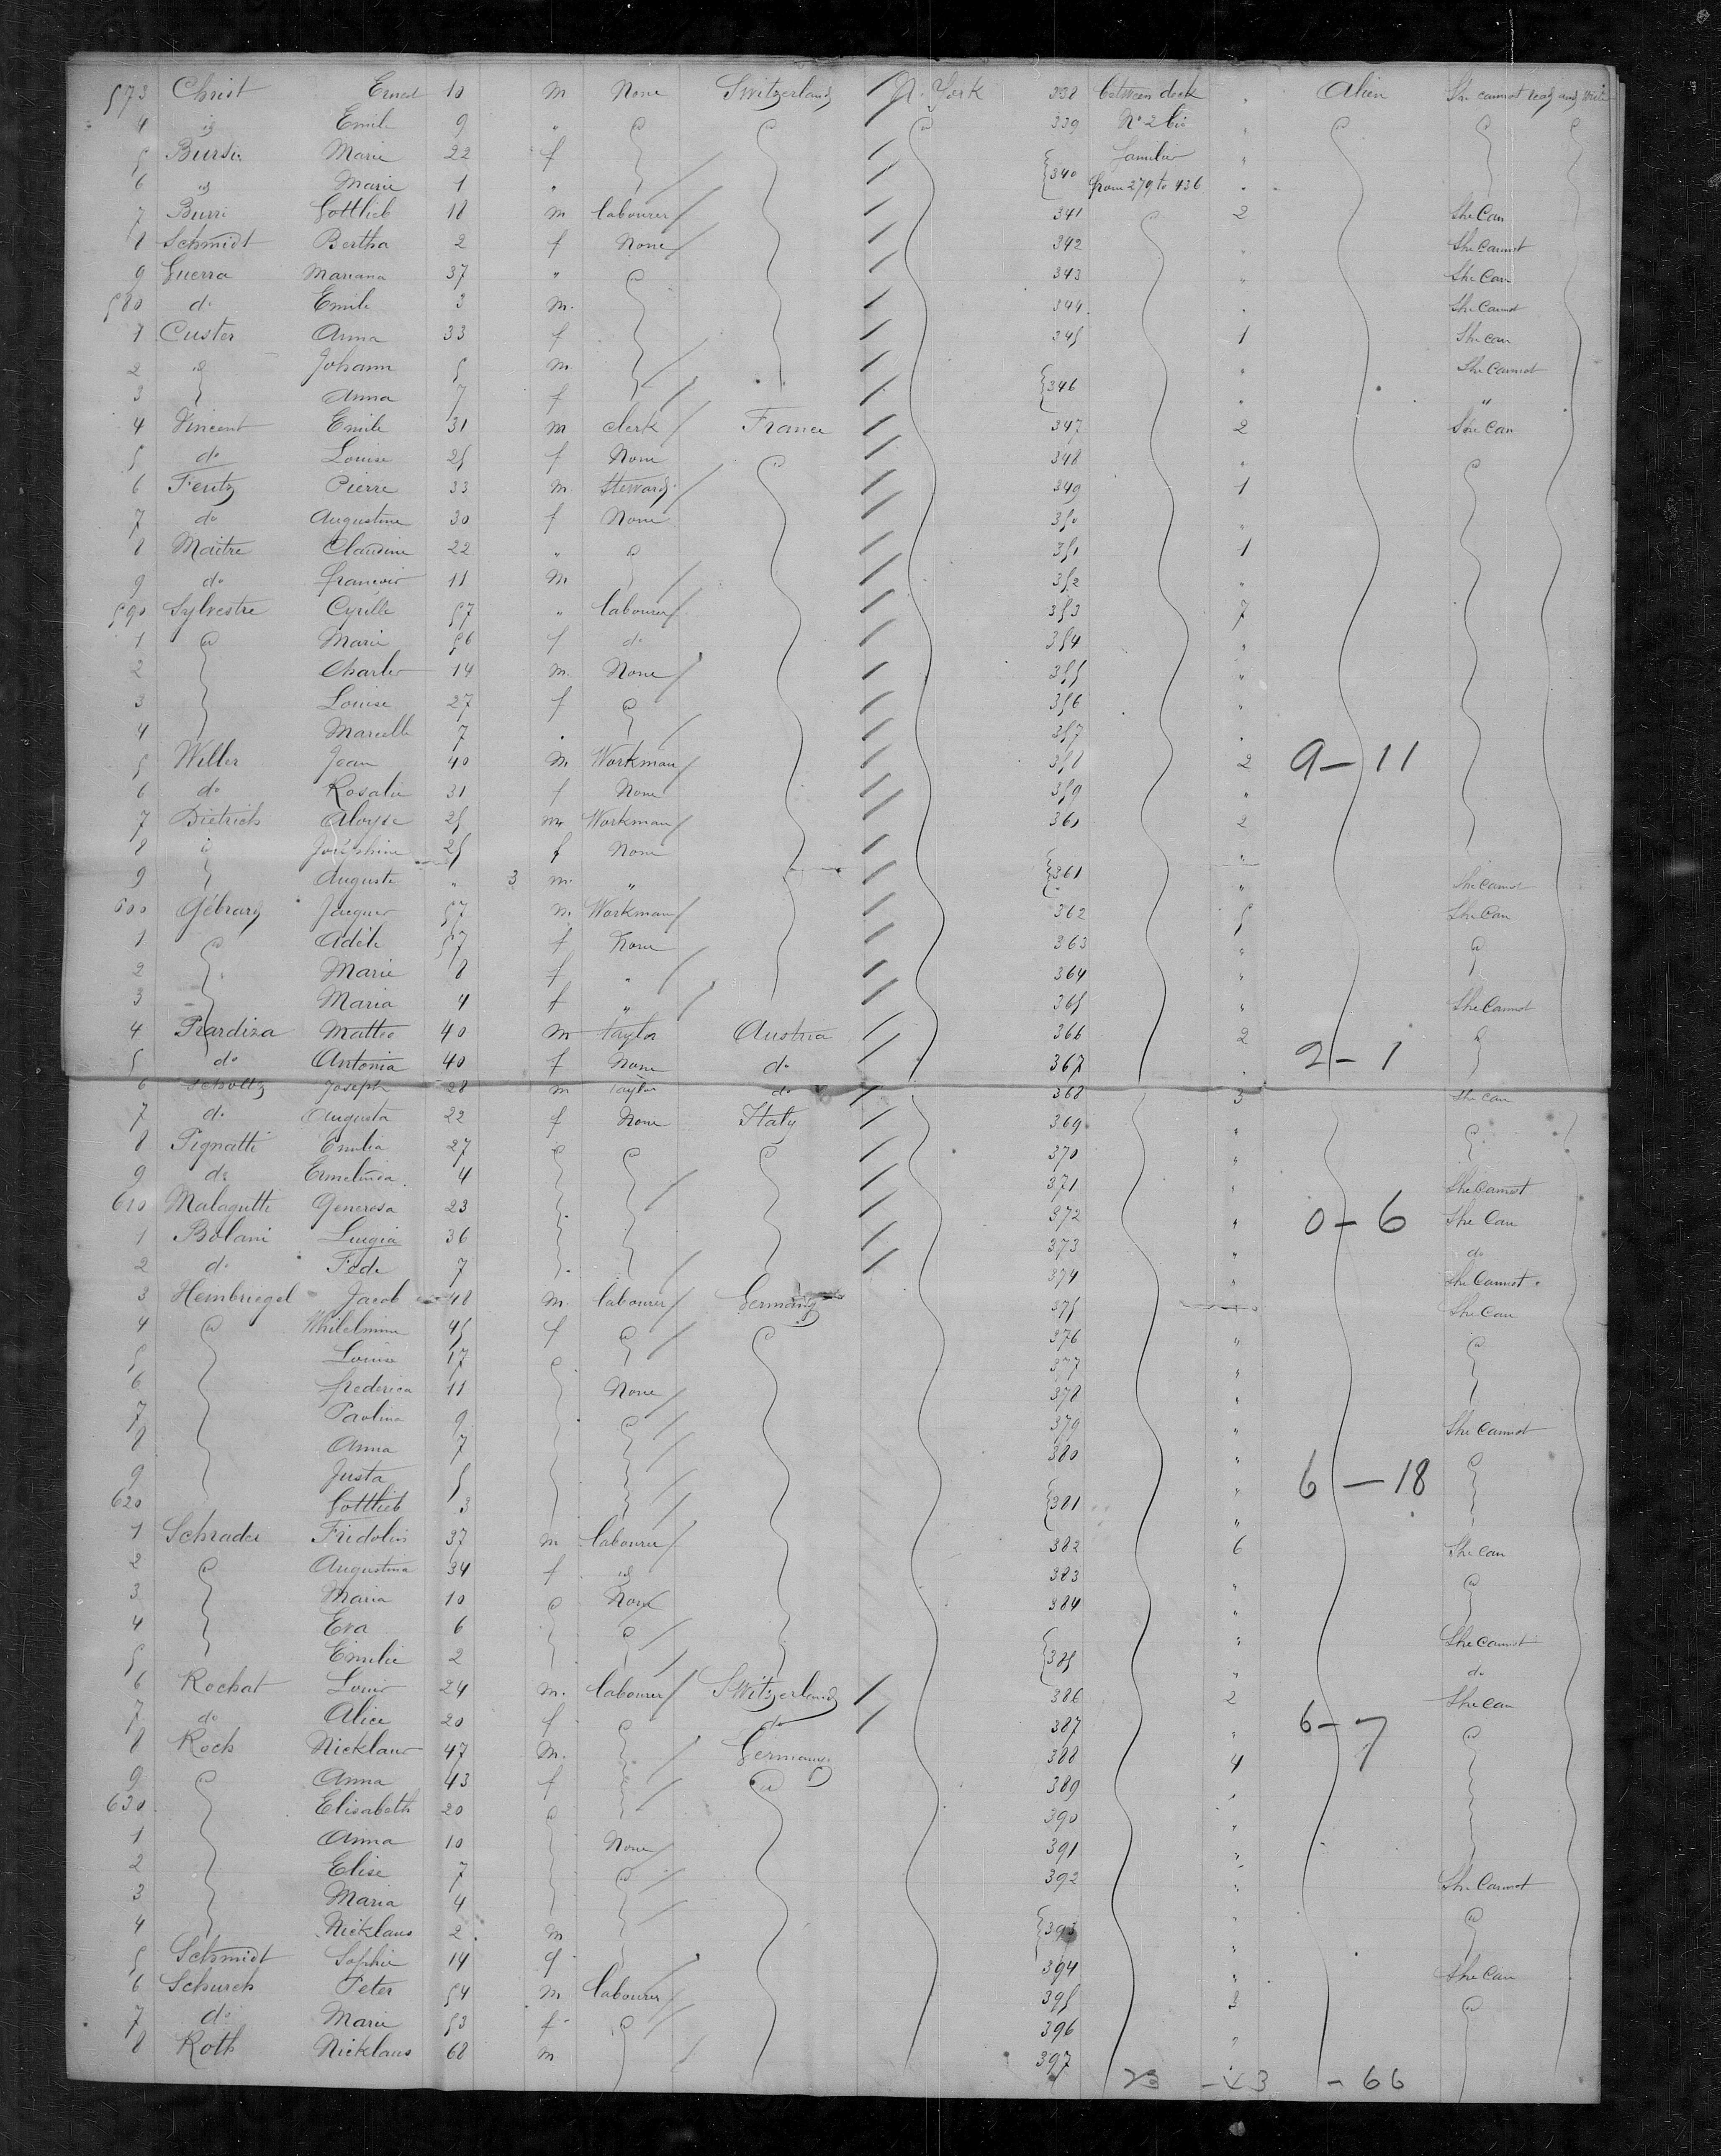 573 Christ Ernest 10 m None Switzerland N. York 338 between deck " Alien She cannot read and write
4 id Emile 9 " 339 N° 2 bis "
5 Bursi Marie 22 f 340 familie "
6 id Marie 1 " from 279 to 436 "
7 Burri Gottlieb 18 m labourer 341 2 She Can
8 Schmidt Bertha 2 f None 342 " She Cannot
9 Guerra Mariana 37 " 343 " She Can
580 do Emile 3 m. 344 " She Cannot
1 Custer Anna 33 f 345 1 She can
2 id Johann 5 m. 346 " She Cannot
3 Anna 7 f " "
4 Vincent Emile 31 m clerk France 347 2 She Can
5 do Louise 25 f None 348 "
6 Fentz Pierre 33 m. Steward 349 1
7 do Augustine 30 f None 350 "
8 Maitre Claudine 22 " 351 1
9 do francois 11 m. 352 "
590 Sylvestre Cyrille 57 " labourer 353 7
1 Marie 56 f do 354 "
2 Charles 14 m. None 355 "
3 Louise 27 f 356 "
4 Marcelle 7 " 357 "
5 Weller Jean 40 m Workman 358 2 9-11
6 do Rosalie 31 f None 359 "
7 Dietrich Aloyse 25 m Workman 360 2
8 id Josephine 25 f None 361 "
9 Auguste " 3 m. " " She Cannot
600 Gébrard Jacques 57 m. Workman 362 5 She Can
1 Adèle 57 f None 363 "
2 Marie 8 f " 364 "
3 Maria 4 f " 365 " She Cannot
4 Prardiza Matteo 40 m taylor Austria 366 2
5 do Antonia 40 f None do 367 " 2-1
6 Scholtz Joseph 28 m Taylor do 368 3 She can
7 do Augusta 22 f None Italy 369 "
8 Pignatti Emilia 27 370 "
9 do Ermelinda 4 371 " She Cannot
610 Malagutti Generosa 23 372 " 0-6 She Can
1 Bolani Luigia 36 373 " do
2 do Fede 7 374 " She Cannot
3 Hembriegel Jacob 48 m. labourer Germany 375 She Can
4 Whilelmine 45 f 376 "
5 Louise 17 377 "
6 frederica 11 None 378 "
7 Paolina 9 379 " She Cannot
8 Anna 7 380 "
9 Justa 5 381 " 6-18
620 Gottlieb 3 "
1 Schrader Fridolin 37 m labourer 382 6 She Can
2 Augustina 34 f id 383 "
3 Maria 10 None 384 "
4 Eva 6 385 " She Cannot
5 Emilie 2 " do
6 Rochat Louis 24 m. labourer Switzerland 386 2 She Can
7 do Alice 20 f do 387 " 6-7
8 Roch Nicklaus 47 m. Germany 388 4
9 Anna 43 f 389 "
630 Elisabeth 20 390 "
1 Anna 10 None 391 "
2 Elise 7 392 " She Cannot
3 Maria 4 393 "
4 Nicklaus 2 m "
5 Schmidt Sophie 14 f 394 " She Can
6 Schurch Peter 54 m labourer 395 3
7 do Marie 53 f 396 "
8 Roth Nicklaus 68 m 397 "
23 - 43 - 66